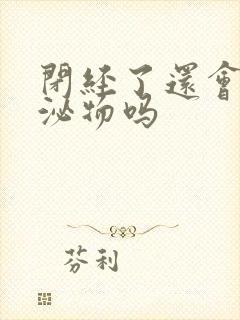 閉經了還會
泌物吗
芬利